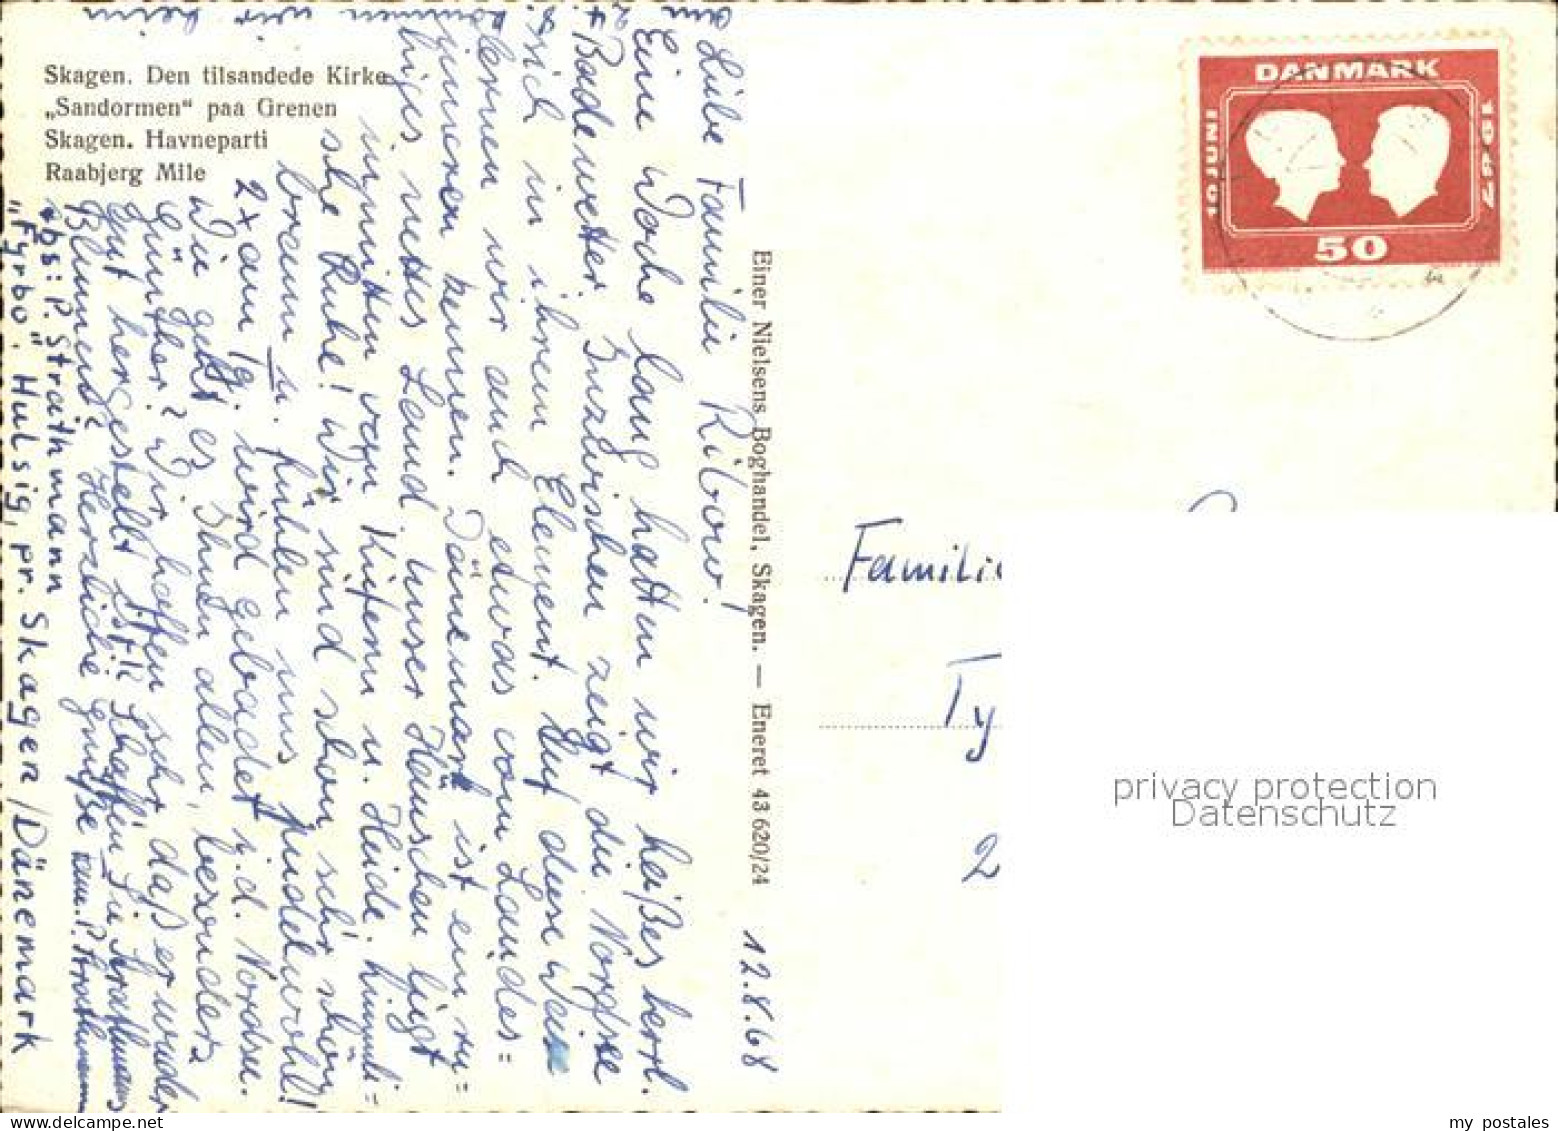 Skagen. Den tilsandede Kirke
„Sandormen“ paa Grenen
Skagen. Havneparti
Raabjerg Mile
Einer Nielsens Boghandel, Skagen. — Eneret 43 620/24
12.8.68
Liebe Familie Ribow!
Eine Woche lang hatten wir heißes herrl.
Badewetter. Inzwischen zeigt die Nordsee
sich in ihrem Element. Auf diese Weise
lernen wir auch etwas vom Landes=
inneren kennen. Dänemark ist ein ru=
higes nettes Land. Unser Häuschen liegt
inmitten von Kiefern u. Heide. Himmli=
sche Ruhe! Wir sind schon sehr schön
braun u. fühlen uns pudelwohl!
2x am Tg. wird gebadet i. d. Nordsee.
Wie geht es Ihnen allen, besonders
Günther? Wir hoffen sehr, daß er wieder
gut hergestellt ist!
Herzliche Grüße
Abs: P. Strathmann
„Fyrbo“. Hulsig, pr. Skagen / Dänemark
am
kommen wir heim
DANMARK
10 JUNI
1967
50
Familie
Ty
2
privacy protection
Datenschutz
my postales